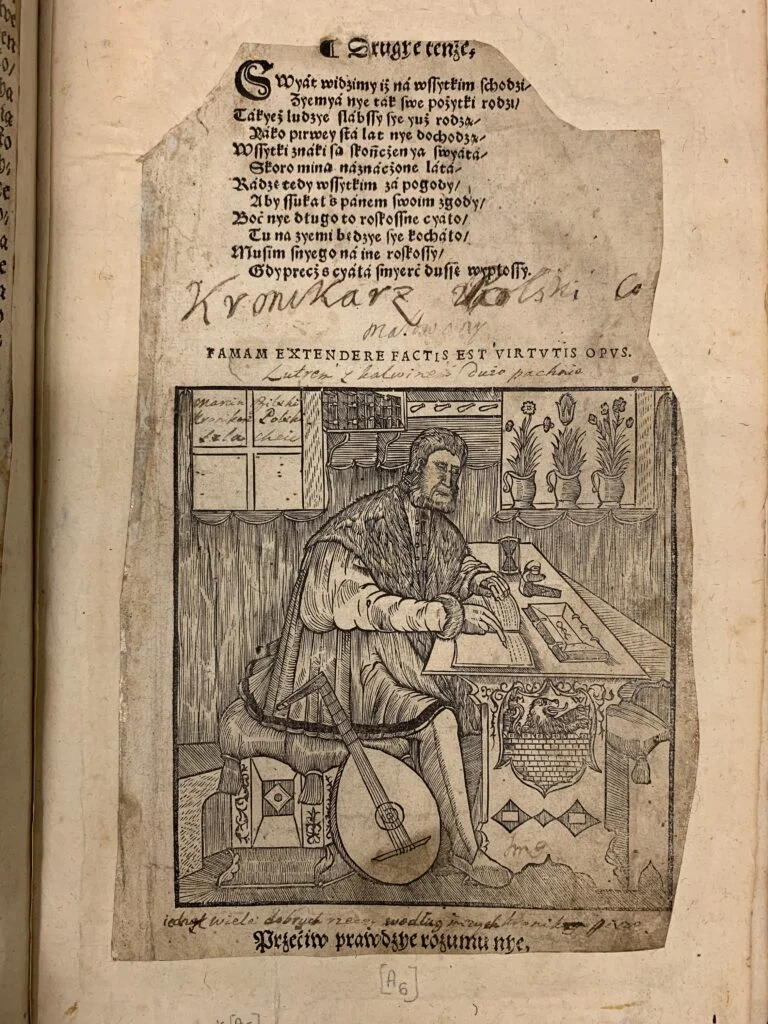 ¶ Drugye tenże,
SWyát widzimy iż ná wssytkim schodzi/
Zyemyá nye ták swe pożytki rodzi/
Tákyeż ludzye slábssy sye yuż rodzą/
Yáko pirwey stá lat nye dochodzą/
Wssytki znáki są skończenya swyátá/
Skoro miną náznáczone látá/
Rádzę tedy wssytkim zá pogody/
Aby ssukał s pánem swoim zgody/
Boć nye długo to roskossne cyáło/
Tu na zyemi będzye sye kocháło/
Musim s nyego ná ine roskossy/
Gdy precż s cyáłá smyerć dussę wypłossy.
Kronikarz Polski Co
malowany
FAMAM EXTENDERE FACTIS EST VIRTVTIS OPVS.
Lutrem z kalwinem Dużo pachnie
Marcin Bilski
Kronikarz Polski
Szlachcic
wiele dobrych rzeczy według inszych
Przećiw prawdzye rozumu nye,
[A6]